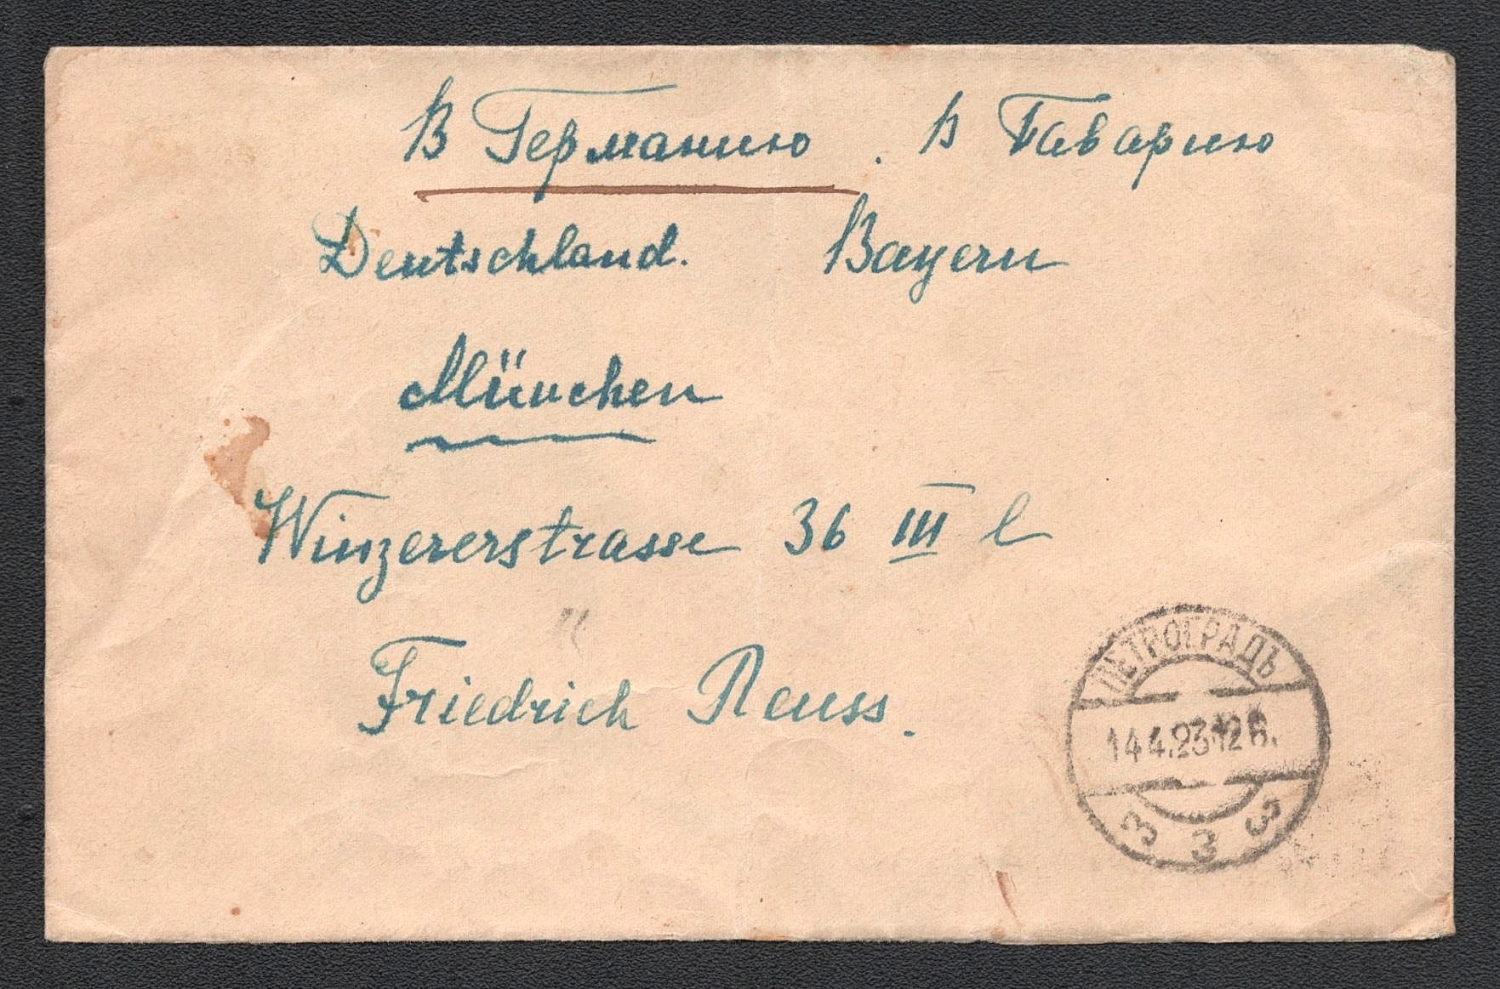 В Германию. В Баварию
Deutschland. Bayern
München
Winzererstrasse 36 III l
Friedrich Reuss.
ПЕТРОГРАДЪ
14.4.23.12
3 3 3